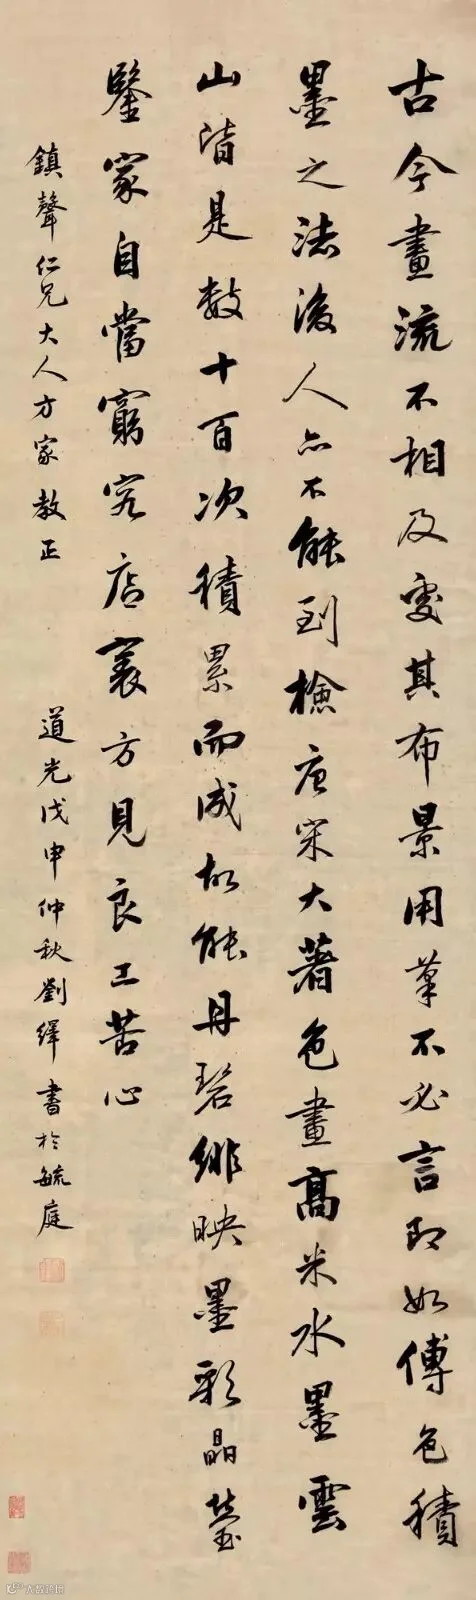 古今畫流不相及處其布景用筆不必言即如傅色積
墨之法後人亦不能到檢唐宋大著色畫高米水墨雲
山皆是數十百次積累而成故能丹碧緋映墨彩晶瑩
鑒家自當窮究底裏方見良工苦心
鎮聲仁兄大人方家教正
道光戊申仲秋劉繹書於毓庭